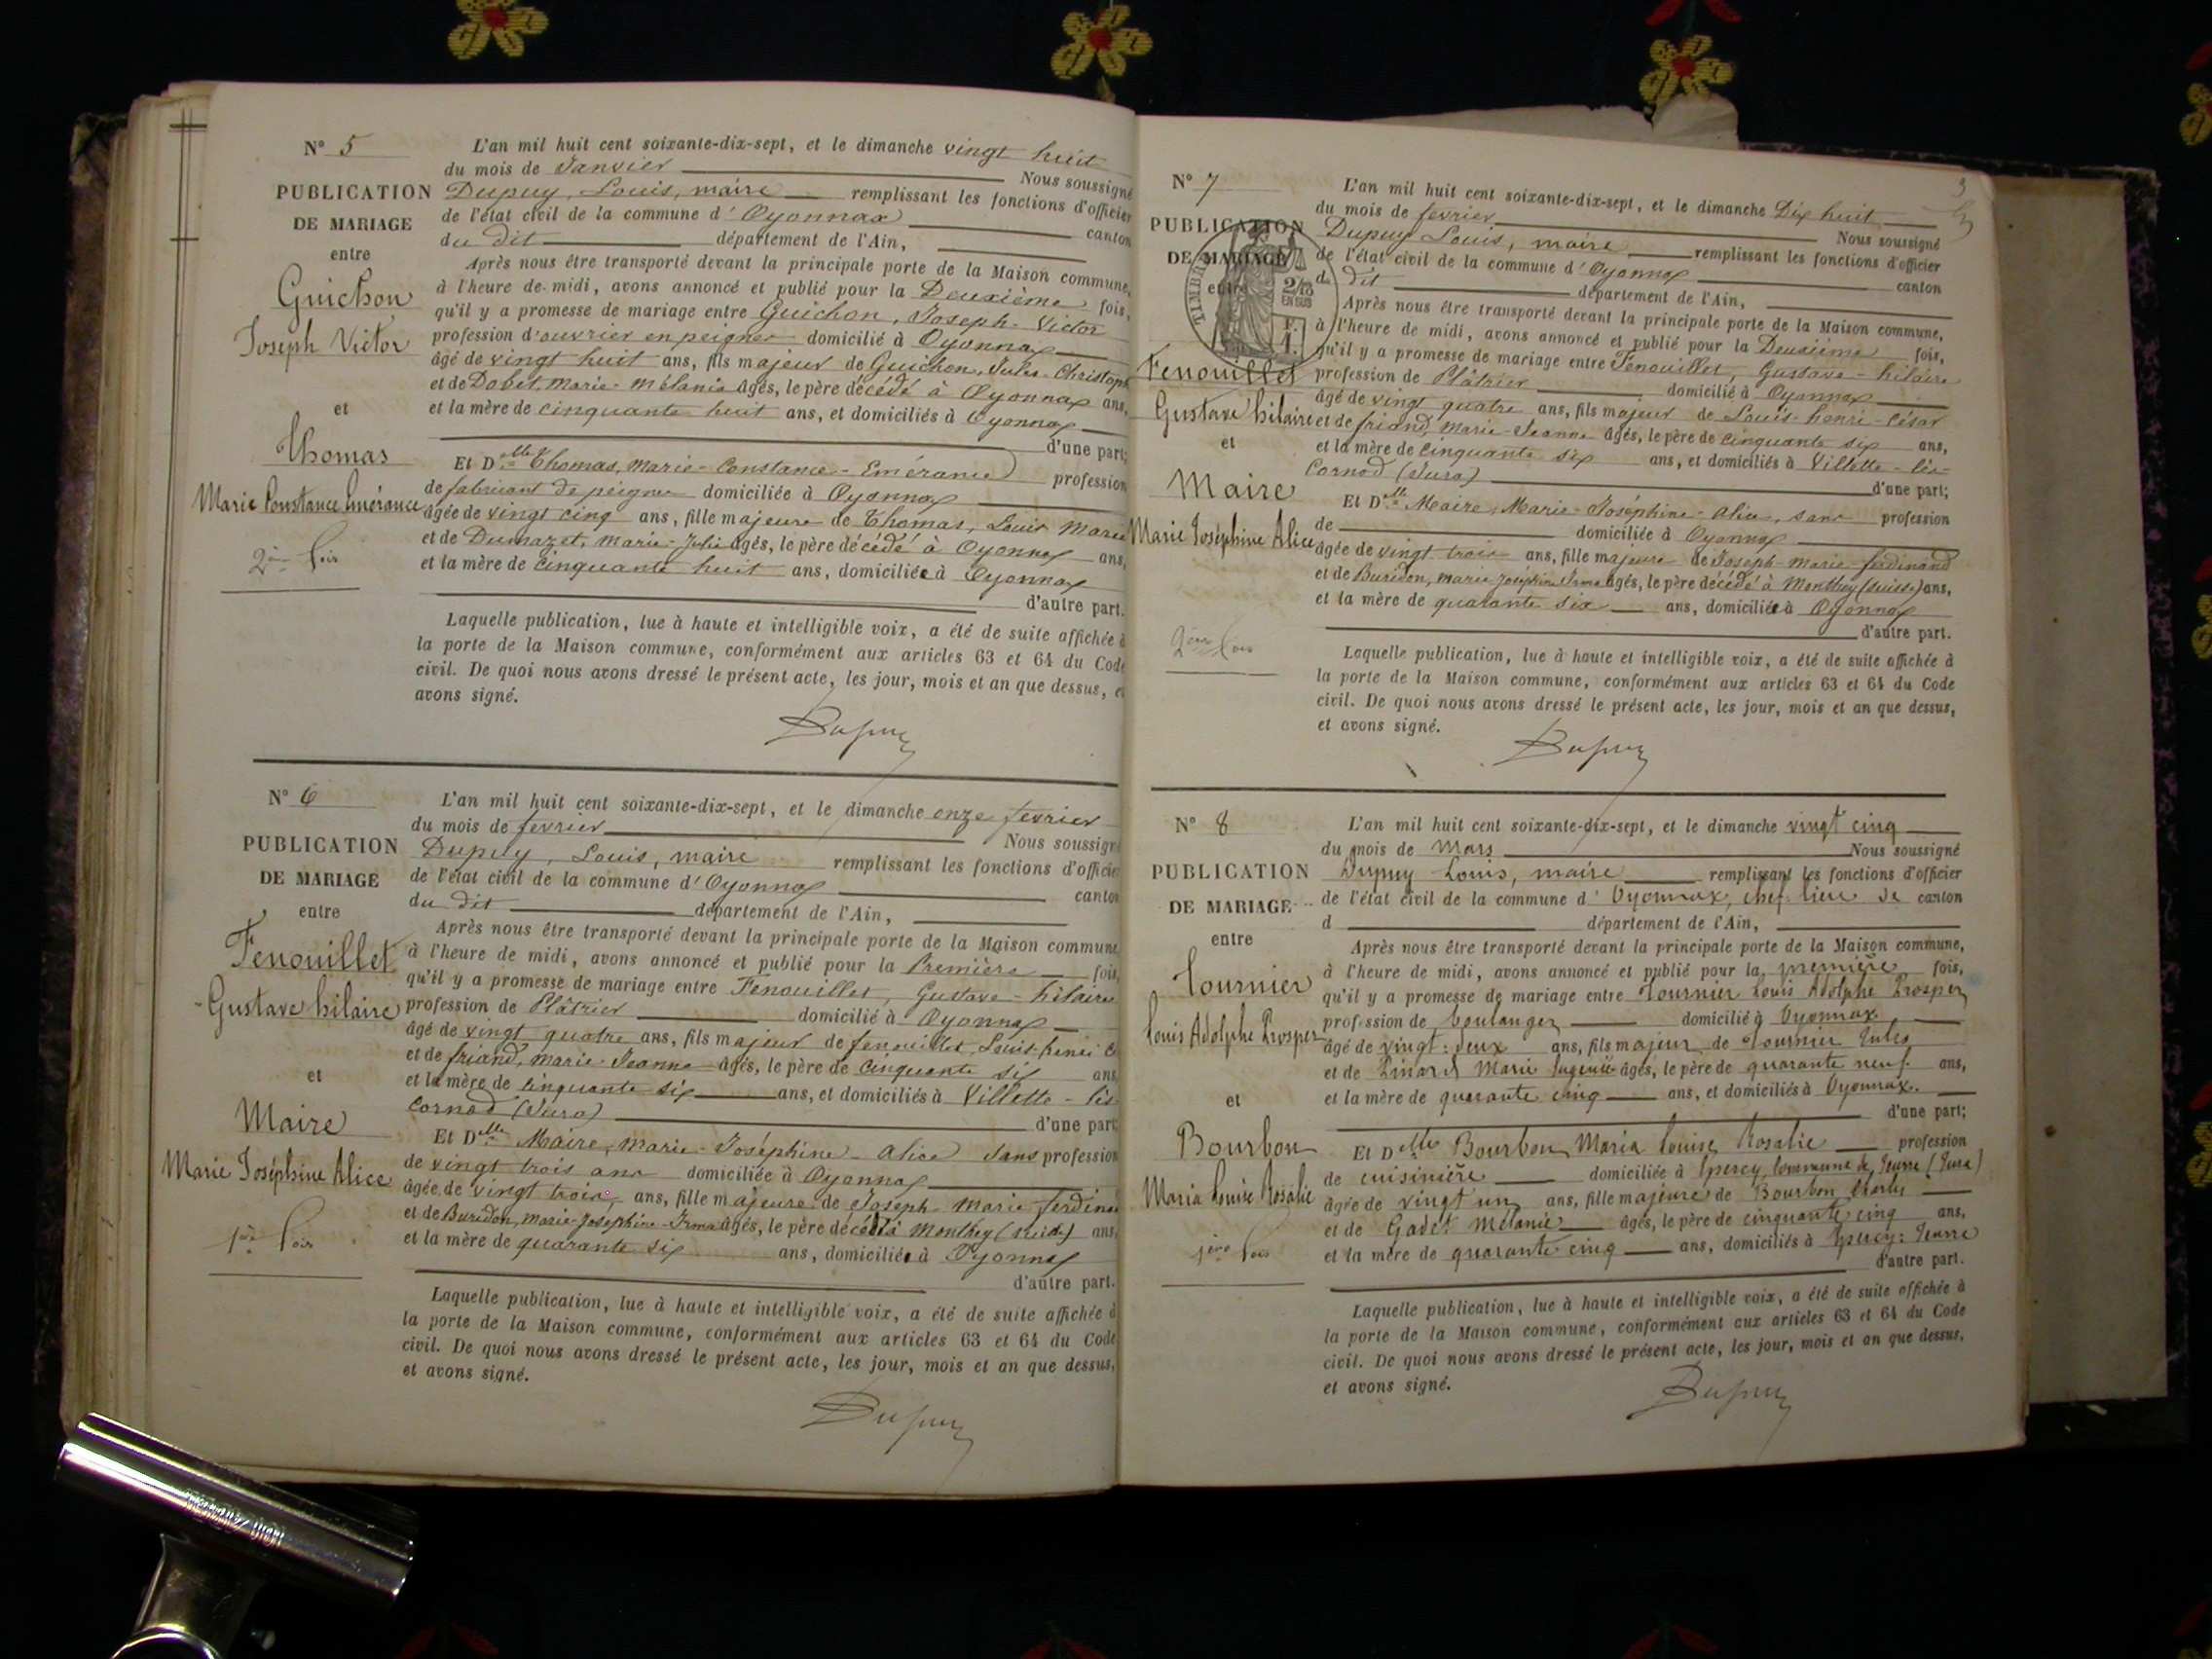 N° 5
PUBLICATION
DE MARIAGE
entre
Guichon
Joseph Victor
et
Thomas
Marie Constance Emérance
2ème fois
L'an mil huit cent soixante-dix-sept, et le dimanche vingt huit
du mois de Janvier Nous soussigné
Dupuy, Louis, maire remplissant les fonctions d'officier
de l'état civil de la commune d'Oyonnax canton
du dit département de l'Ain,
Après nous être transporté devant la principale porte de la Maison commune,
à l'heure de midi, avons annoncé et publié pour la Deuxième fois,
qu'il y a promesse de mariage entre Guichon, Joseph-Victor
profession d'ouvrier en peignes domicilié à Oyonnax
âgé de vingt huit ans, fils majeur de Guichon, Jules-Christoph
et de Dobet, Marie-Mélanie âgés, le père décédé à Oyonnax ans,
et la mère de cinquante huit ans, et domiciliés à Oyonnax
d'une part;
Et Dlle Thomas, Marie-Constance-Emérance profession
de fabricant de peignes domiciliée à Oyonnax
âgée de vingt cinq ans, fille majeure de Thomas, Louis Marie
et de Dumazet, Marie-Julie âgés, le père décédé à Oyonnax ans,
et la mère de cinquante huit ans, domiciliée à Oyonnax
d'autre part.
Laquelle publication, lue à haute et intelligible voix, a été de suite affichée à
la porte de la Maison commune, conformément aux articles 63 et 64 du Code
civil. De quoi nous avons dressé le présent acte, les jour, mois et an que dessus, et
avons signé.
Dupuy
N° 6
PUBLICATION
DE MARIAGE
entre
Fenouillet
Gustave hilaire
et
Maire
Marie Joséphine Alice
1ère fois
L'an mil huit cent soixante-dix-sept, et le dimanche onze fevrier
du mois de fevrier Nous soussigné
Dupuy, Louis, maire remplissant les fonctions d'officier
de l'état civil de la commune d'Oyonnax canton
du dit département de l'Ain,
Après nous être transporté devant la principale porte de la Maison commune,
à l'heure de midi, avons annoncé et publié pour la Première fois,
qu'il y a promesse de mariage entre Fenouillet, Gustave-hilaire
profession de Plâtrier domicilié à Oyonnax
âgé de vingt quatre ans, fils majeur de fenouillet, Louis-henri C
et de friand, Marie-Jeanne âgés, le père de cinquante six ans
et la mère de cinquante six ans, et domiciliés à Villette-lès
Cornod (Jura) d'une part
Et Dlle Maire, Marie-Joséphine-Alice Sans profession
de vingt trois ans domiciliée à Oyonnax
âgée de vingt trois ans, fille majeure de Joseph-Marie ferdinand
et de Buridon, Marie-Joséphine-Irma âgés, le père décédé à Monthey (Suisse) ans,
et la mère de quarante six ans, domiciliée à Oyonnax
d'autre part.
Laquelle publication, lue à haute et intelligible voix, a été de suite affichée à
la porte de la Maison commune, conformément aux articles 63 et 64 du Code
civil. De quoi nous avons dressé le présent acte, les jour, mois et an que dessus,
et avons signé.
Dupuy
3
N° 7
PUBLICATION
DE MARIAGE
entre
TIMBRE
2/10
EN SUS
Fenouillet
Gustave hilaire
et
Maire
Marie Joséphine Alice
2ème fois
L'an mil huit cent soixante-dix-sept, et le dimanche Dix huit
du mois de fevrier Nous soussigné
Dupuy Louis, maire remplissant les fonctions d'officier
de l'état civil de la commune d'Oyonnax canton
du dit département de l'Ain,
Après nous être transporté devant la principale porte de la Maison commune,
à l'heure de midi, avons annoncé et publié pour la Deuxième fois,
qu'il y a promesse de mariage entre Fenouillet, Gustave-hilaire
profession de Plâtrier domicilié à Oyonnax
âgé de vingt quatre ans, fils majeur de Louis-henri-César
et de friand, Marie-Jeanne âgés, le père de cinquante six ans,
et la mère de cinquante six ans, et domiciliés à Villette-lès-
Cornod (Jura) d'une part;
Et Dlle Maire, Marie-Joséphine-Alice, sans profession
de domiciliée à Oyonnax
âgée de vingt trois ans, fille majeure de Joseph-Marie-ferdinand
et de Buridon, Marie Joséphine Irma âgés, le père décédé à Monthey (Suisse) ans,
et la mère de quarante six ans, domiciliée à Oyonnax
d'autre part.
Laquelle publication, lue à haute et intelligible voix, a été de suite affichée à
la porte de la Maison commune, conformément aux articles 63 et 64 du Code
civil. De quoi nous avons dressé le présent acte, les jour, mois et an que dessus,
et avons signé.
Dupuy
N° 8
PUBLICATION
DE MARIAGE
entre
Tournier
Louis Adolphe Prosper
et
Bourbon
Maria Louise Rosalie
1ère fois
L'an mil huit cent soixante-dix-sept, et le dimanche vingt cinq
du mois de Mars Nous soussigné
Dupuy Louis, maire remplissant les fonctions d'officier
de l'état civil de la commune d'Oyonnax, chef lieu de canton
d département de l'Ain,
Après nous être transporté devant la principale porte de la Maison commune,
à l'heure de midi, avons annoncé et publié pour la première fois,
qu'il y a promesse de mariage entre Tournier Louis Adolphe Prosper
profession de boulanger domicilié à Oyonnax
âgé de vingt-deux ans, fils majeur de Tournier Jules
et de Pinard Marie Eugénie âgés, le père de quarante neuf ans,
et la mère de quarante cinq ans, et domiciliés à Oyonnax.
d'une part;
Et Dlle Bourbon Maria Louise Rosalie profession
de cuisinière domiciliée à Epercy, commune de Jeurre (Jura)
âgée de vingt un ans, fille majeure de Bourbon Charles
et de Gadet Mélanie âgés, le père de cinquante cinq ans,
et la mère de quarante cinq ans, domiciliés à Epercy: Jeurre
d'autre part.
Laquelle publication, lue à haute et intelligible voix, a été de suite affichée à
la porte de la Maison commune, conformément aux articles 63 et 64 du Code
civil. De quoi nous avons dressé le présent acte, les jour, mois et an que dessus,
et avons signé.
Dupuy